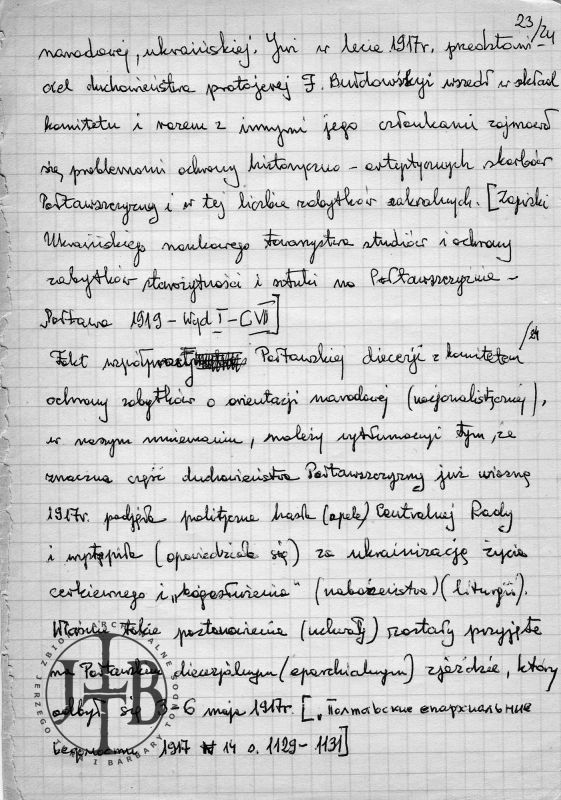 23/24
narodowej, ukraińskiej. Już w lecie 1917r. przedstawi-
ciel duchowieństwa protojerej F. Bułdowśkyj wszedł w skład
komitetu i razem z innymi jego członkami zajmował
się problemami ochrony historyczno-artystycznych skarbów
Połtawszczyzny i w tej liczbie zabytków sakralnych. [Zapiski
Ukraińskiego naukowego towarzystwa studiów i ochrony
zabytków starożytności i sztuki na Połtawszczyźnie -
Połtawa 1919 - Wyd I - C VII]
/24
Fakt współpracy Połtawskiej diecezji z komitetem
ochrony zabytków o orientacji narodowej (nacjonalistycznej),
w naszym mniemaniu, należy wytłumaczyć tym, że
znaczna część duchowieństwa Połtawszczyzny już wiosną
1917r. podjęła polityczne hasła (apele) Centralnej Rady
i wystąpiła (opowiedziała się) za ukrainizację życia
cerkiewnego i „bogosłużenia" (nabożeństwa) (liturgii).
Właśnie takie postanowienia (uchwały) zostały przyjęte
na Połtawskim diecezjalnym (eparchialnym) zjeździe, który
odbył się 3-6 maja 1917r. [„Полтавские епархиальние
ведомости 1917 № 14 s. 1129-1131]